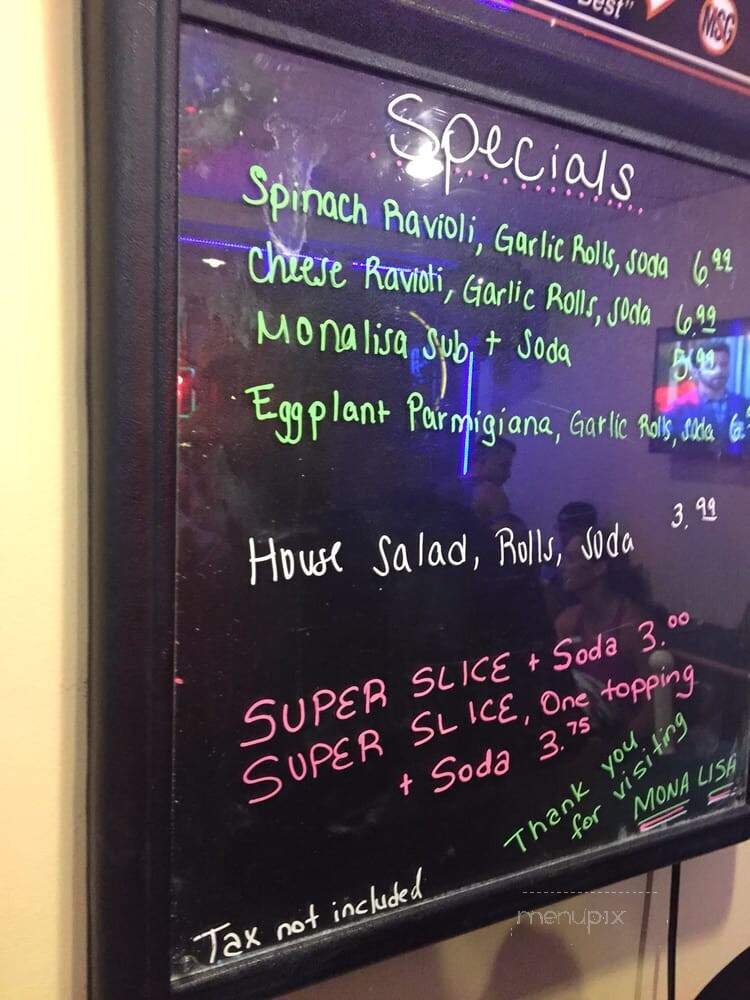 Best"
MSG
Specials
Spinach Ravioli, Garlic Rolls, soda 6.99
Cheese Ravioli, Garlic Rolls, soda 6.99
Monalisa Sub + Soda 5.99
Eggplant Parmigiana, Garlic Rolls, soda 6.
House Salad, Rolls, soda 3.99
SUPER SLICE + Soda 3.00
SUPER SLICE, One topping
+ Soda 3.75
Thank you
for visiting
MONA LISA
Tax not included
menupix